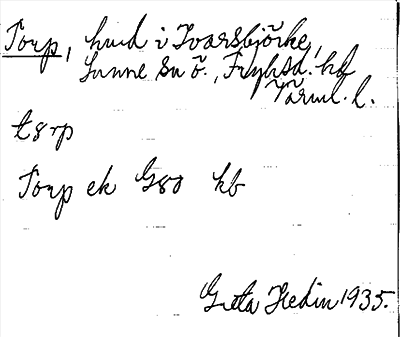 Torp, hmd i Ivarsbjörke,
Sunne sn ö., Fryksd. hd
Värml. l.
tɜrp
Torp ek G80 kb
Greta Hedin 1935.